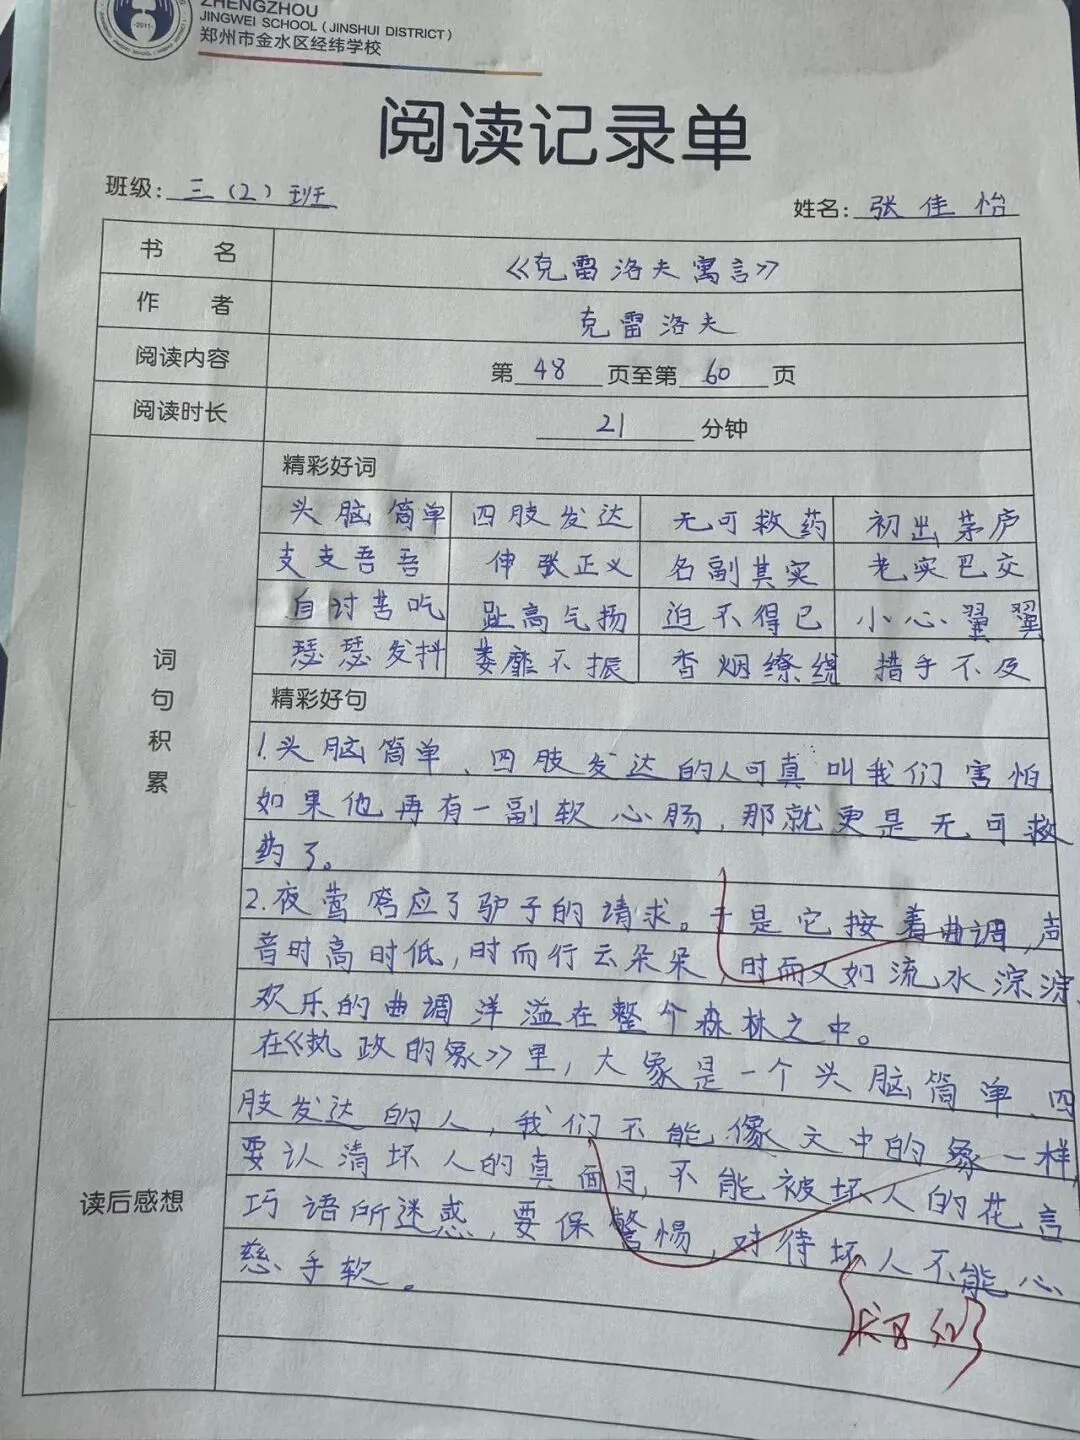 ZHENGZHOU
JINGWEI SCHOOL (JINSHUI DISTRICT)
郑州市金水区经纬学校
阅读记录单
班级: 三(2)班
姓名: 张佳怡
书 名 《克雷洛夫寓言》
作 者 克雷洛夫
阅读内容 第 48 页至第 60 页
阅读时长 21 分钟
词句积累
精彩好词
头脑简单 四肢发达 无可救药 初出茅庐
支支吾吾 伸张正义 名副其实 老实巴交
自讨苦吃 趾高气扬 迫不得已 小心翼翼
瑟瑟发抖 萎靡不振 香烟缭绕 措手不及
精彩好句
1.头脑简单、四肢发达的人可真叫我们害怕
如果他再有一副软心肠,那就更是无可救
药了。
2.夜莺答应了驴子的请求。于是它按着曲调,声
音时高时低,时而行云朵朵,时而又如流水淙淙,
欢乐的曲调洋溢在整个森林之中。
读后感想
在《执政的象》里,大象是一个头脑简单、四
肢发达的人,我们不能像文中的象一样,
要认清坏人的真面目,不能被坏人的花言
巧语所迷惑,要保警惕,对待坏人不能心
慈手软。